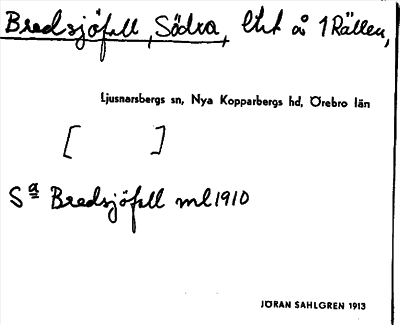 Bredsjöfall, Södra, lht å 1 Rällen,
Ljusnarsbergs sn, Nya Kopparbergs hd, Örebro län
[ ]
Sa Bredsjöfall ml 1910
JÖRAN SAHLGREN 1913